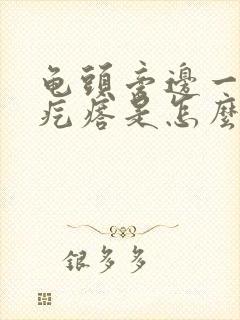 龟頭旁邊一
疙瘩是怎麼
银多多